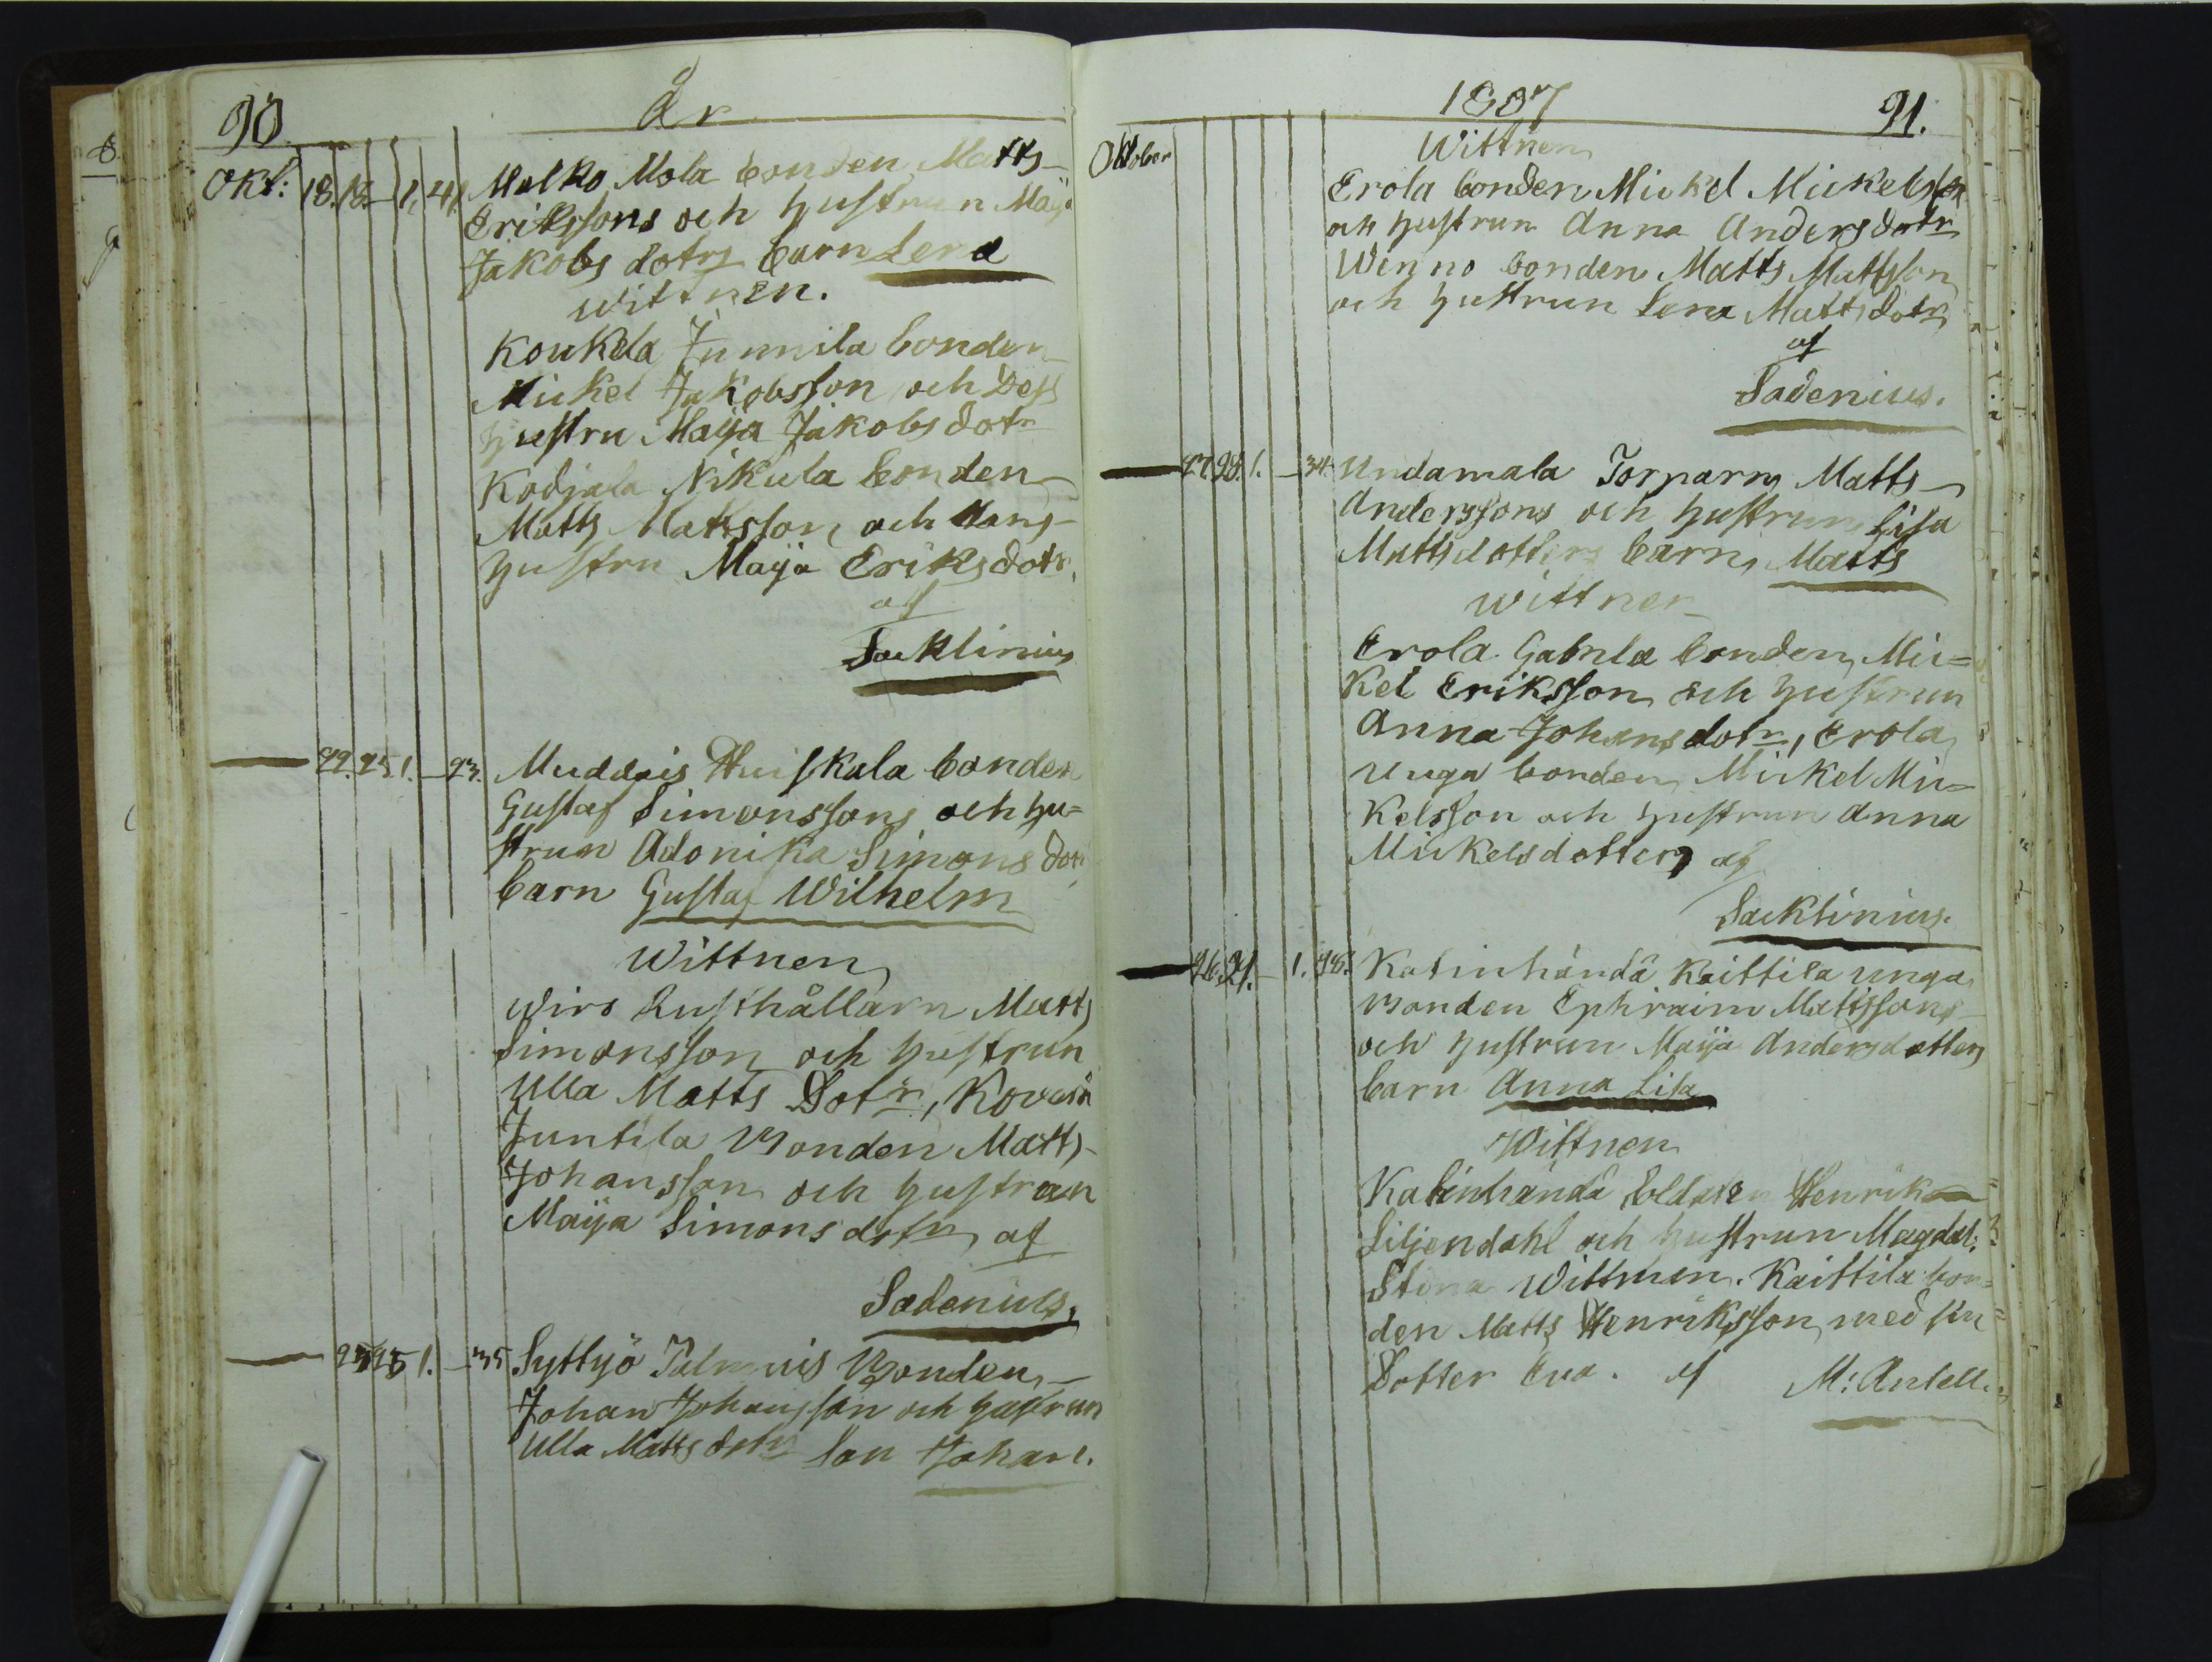 90
År
Okt: 18. 18. - 1. 41. Melko Mola bonden Matts
Erikssons och hustrun Maja
Jakobs dotrs barn Lena
Wittnen.
Koukela Junnila bonden
Mickel Jakobsson och Dess
hustru Maija Jakobs dotr
Kodjala Nikula bonden
Matts Matsson och Hans
hustru Maija Eriks dotr.
af
Sacklinius
22. 25 1. - 23. Muddais Huiskala bonden
Gustaf Simonssons och hu=
strun Adonika Simons dotr
barn Gustaf Wilhelm
Wittnen
Wiro Rusthållarn Matts
Simonsson och hustrun
Ulla Matts Dotr, Kovero
Juntila Bonden Matts
Johansson och hustrun
Maija Simons dotr af
Sadenius.
23 25 1. - 35 Syttyö Bonden
Johan Johansson och hustrun
Ulla Matts dotr son Johan.
1807
91.
Oktober
Wittnen
Erola bonden Mickel Mickelsson
och hustrun Anna Anders dotr
Winno bonden Matts Mattsson
och hustrun Lena Matts dotr
af
Sadenius.
27. 28. 1. - 34. Undamala Torparns Matts
Anderssons och hustrun Lisa
Mattsdotters barn Matts
Wittnen
Erola Gabrila bonden Mic=
kel Eriksson och hustrun
Anna Johans dotr, Erola
unga bonden Mickel Mic=
kelsson och hustrun Anna
Mickelsdotter af
Sacklinius.
26. 29. - 1. 28. Katinhändä Kaittila unga
Bonden Ephraim Mattssons
och hustrun Maija Andersdotters
barn Anna Lisa
Wittnen
Katinhändä Soldaten Henrik
Liljendahl och hustrun Magdal:
Stina Wittmen. Kaittila bon=
den Matts Henriksson med sin
Dotter Eva. af M: Antell.